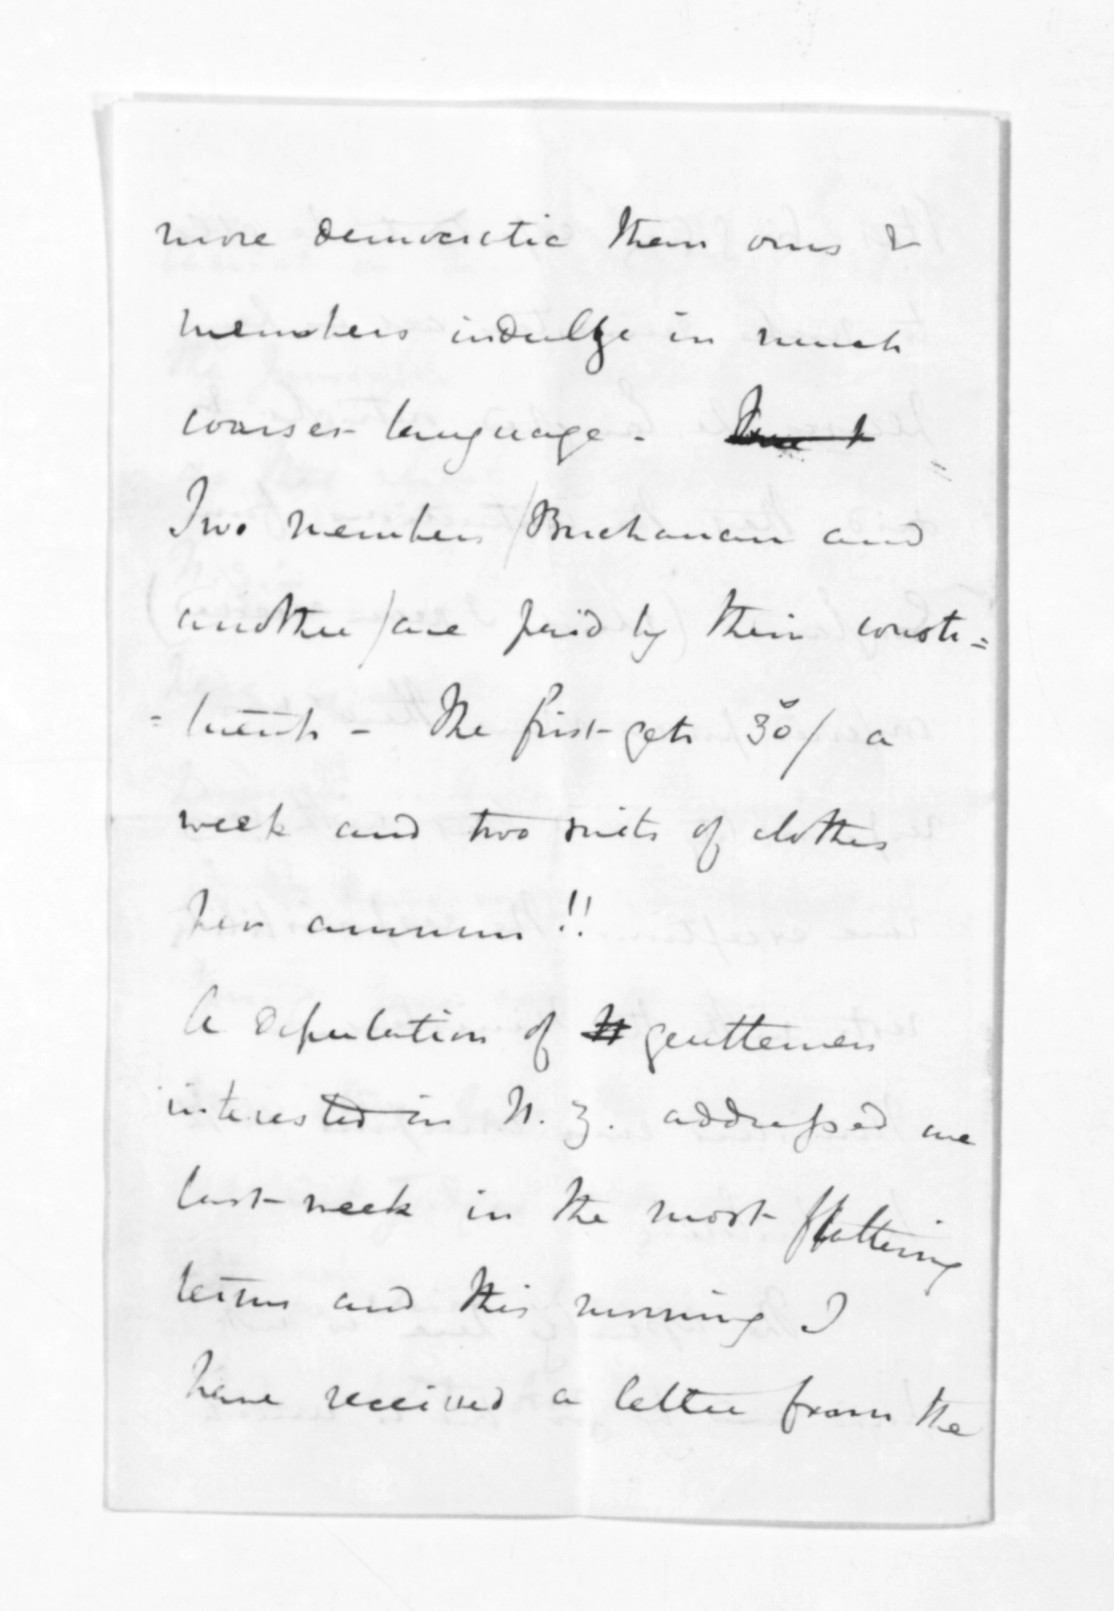 more democratic than ours &
members indulge in much
coarser language.
Two members (Buchanan and
another) are paid by their consti=
=tuents - The first gets 30/ a
week and two suits of clothes
per annum!!
A deputation of gentlemen
interested in N.Z. addressed me
last week in the most flattering
terms and this morning I
have received a letter from the